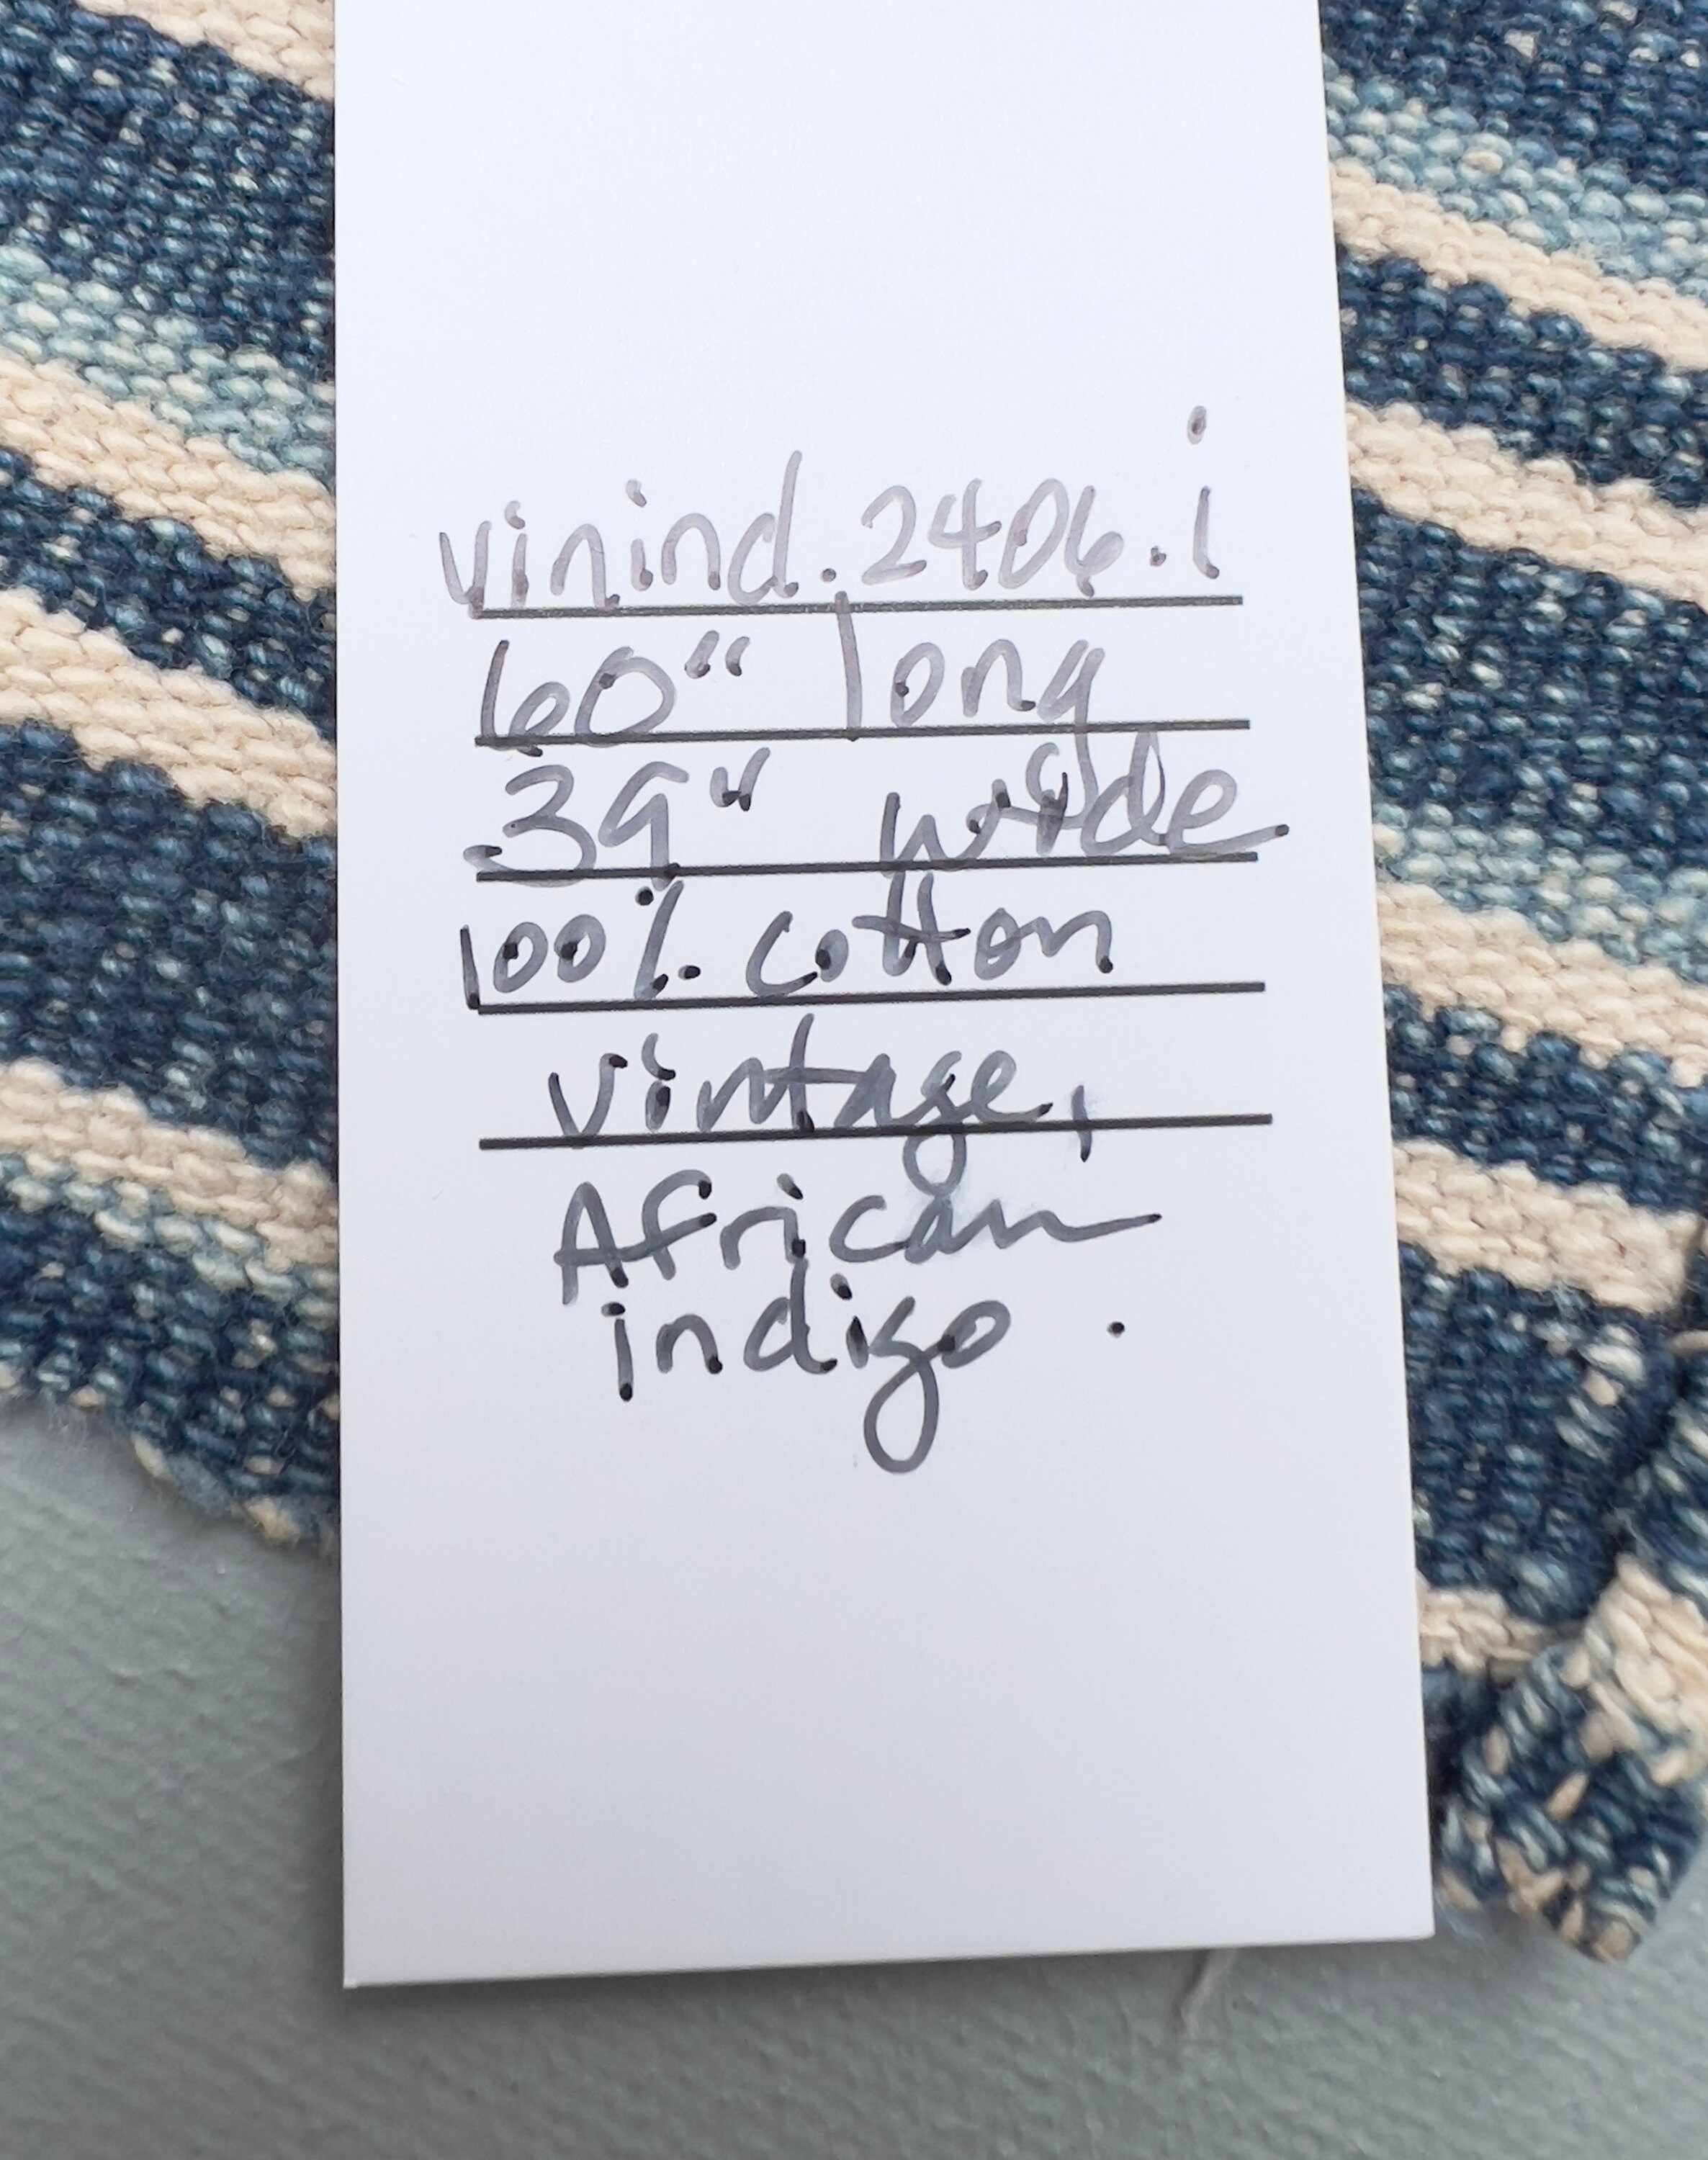 vinind.2406.i
60" long
39" wide
100% cotton
vintage,
African
indigo